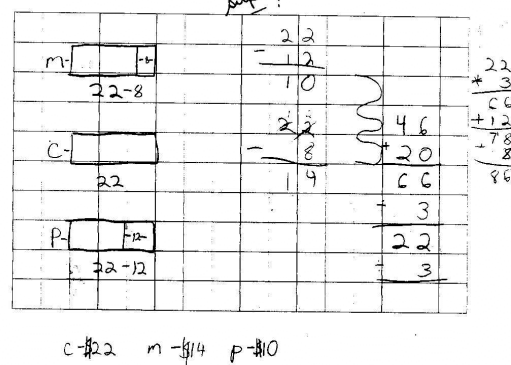 m- -8-
22-8
C-
22
P- -12-
22-12
22
- 12
10
22
- 8
14
46
+ 20
66
÷ 3
22
- 3
22
* 3
66
+12
78
+ 8
86
C-$22 m-$14 p-$10